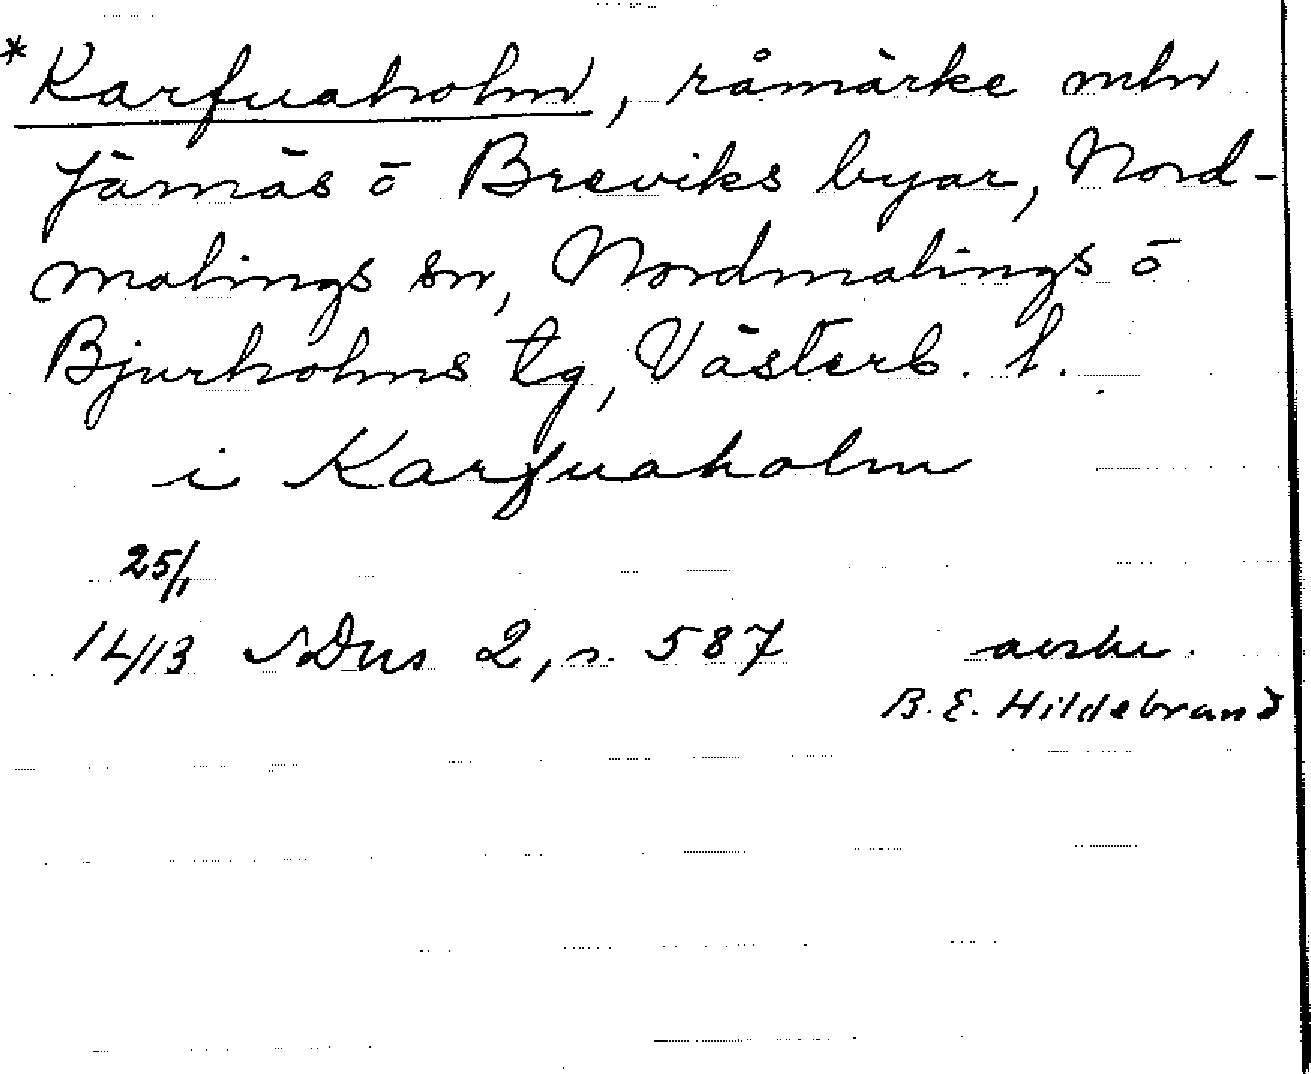 *Karfuaholm, råmärke mln
Järnäs o Breviks byar, Nord-
malings sn, Nordmalings o
Bjurholms tg, Västerb. l.
i Karfuaholm
25/1
14/13 SDns 2, s. 587 avskr.
B.E. Hildebrand